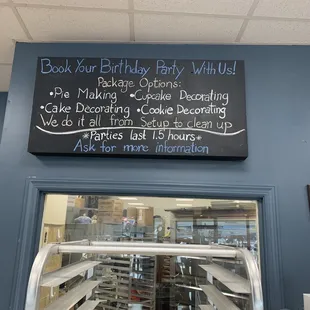 Book Your Birthday Party With Us!
Package Options:
•Pie Making •Cupcake Decorating
•Cake Decorating •Cookie Decorating
We do it all from Setup to clean up
*Parties last 1.5 hours*
Ask for more information